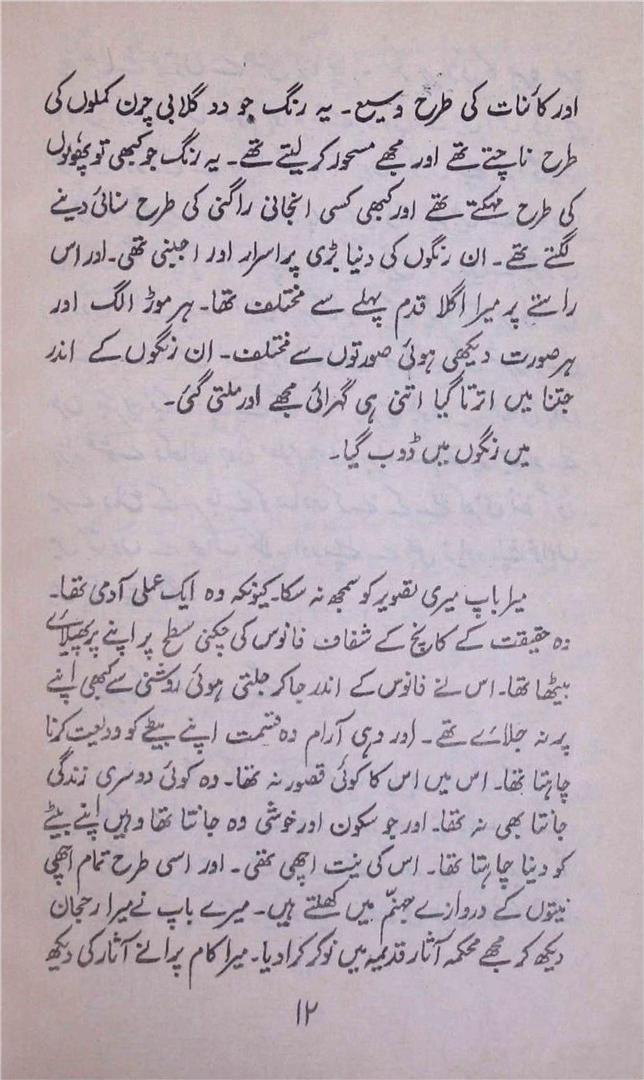 اور کائنات کی طرح وسیع۔ یہ رنگ جو دو گلابی چرن کملوں کی
طرح ناچتے تھے اور مجھے مسحور کر لیتے تھے۔ یہ رنگ جو کبھی تو پھولوں
کی طرح مہکتے تھے اور کبھی کسی انجانی راگنی کی طرح سنائی دینے
لگتے تھے۔ ان رنگوں کی دنیا بڑی پراسرار اور اجنبی تھی۔ اور اس
راستے پر میرا اگلا قدم پہلے سے مختلف تھا۔ ہر موڑ الگ اور
ہر صورت دیکھی ہوئی صورتوں سے مختلف۔ ان رنگوں کے اندر
جتنا میں اترتا گیا اتنی ہی گہرائی مجھے اور ملتی گئی۔
میں رنگوں میں ڈوب گیا۔
میرا باپ میری تصویر کو سمجھ نہ سکا۔ کیونکہ وہ ایک عملی آدمی تھا۔
وہ حقیقت کے کانچ کے شفاف فانوس کی چکنی سطح پر اپنے پر پھیلائے
بیٹھا تھا۔ اس نے فانوس کے اندر جا کر جلتی ہوئی روشنی سے کبھی اپنے
پر نہ جلائے تھے۔ اور وہی آرام دہ قسمت اپنے بیٹے کو ودیعت کرنا
چاہتا تھا۔ اس میں اس کا کوئی قصور نہ تھا۔ وہ کوئی دوسری زندگی
جانتا بھی نہ تھا۔ اور جو سکون اور خوشی وہ جانتا تھا وہیں اپنے بیٹے
کو دینا چاہتا تھا۔ اس کی نیت اچھی تھی۔ اور اسی طرح تمام اچھی
نیتوں کے دروازے جہنّم میں کھلتے ہیں۔ میرے باپ نے میرا رحجان
دیکھ کر مجھے محکمہ آثار قدیمہ میں نوکر کرا دیا۔ میرا کام پرانے آثار کی دیکھ
۱۲